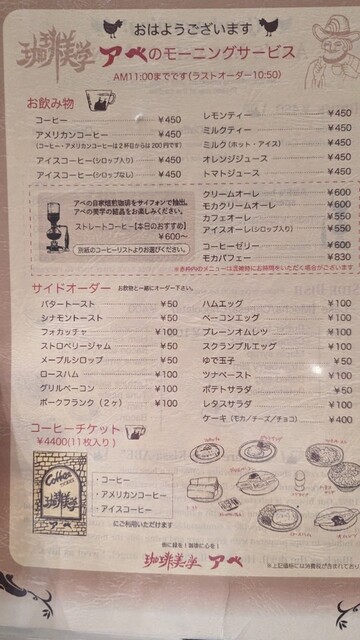 おはようございます
珈琲美学 アベのモーニングサービス
AM11:00までです(ラストオーダー10:50)
お飲み物
コーヒー ¥450
アメリカンコーヒー ¥450
(コーヒー・アメリカンコーヒーは2杯目からは200円です)
アイスコーヒー(シロップ入り) ¥450
アイスコーヒー(シロップなし) ¥450
レモンティー ¥450
ミルクティー ¥450
ミルク(ホット・アイス) ¥450
オレンジジュース ¥450
トマトジュース ¥450
アベの自家焙煎珈琲をサイフォンで抽出。
アベの美学の結晶をお楽しみください。
ストレートコーヒー【本日のおすすめ】
¥600〜
別紙のコーヒーリストよりお選びください。
クリームオーレ ¥600
モカクリームオーレ ¥600
カフェオーレ ¥550
アイスオーレ(シロップ入り) ¥550
コーヒーゼリー ¥600
モカパフェー ¥830
※赤枠内のメニューは混雑時にお時間をいただく場合がございます
サイドオーダー お飲物と一緒にオーダー下さい。
バタートースト ¥50
シナモントースト ¥50
フォカッチャ ¥100
ストロベリージャム ¥50
メープルシロップ ¥50
ロースハム ¥100
グリルベーコン ¥100
ポークフランク(2ヶ) ¥100
ハムエッグ ¥100
ベーコンエッグ ¥100
プレーンオムレツ ¥100
スクランブルエッグ ¥100
ゆで玉子 ¥50
ツナペースト ¥100
ポテトサラダ ¥50
レタスサラダ ¥100
ケーキ(モカ/チーズ/チョコ) ¥400
コーヒーチケット
¥4400(11枚入り)
Coffee
珈琲美学
アベ
・コーヒー
・アメリカンコーヒー
・アイスコーヒー
にご利用いただけます
珈琲美学 アベ
※上記価格には消費税が含まれており